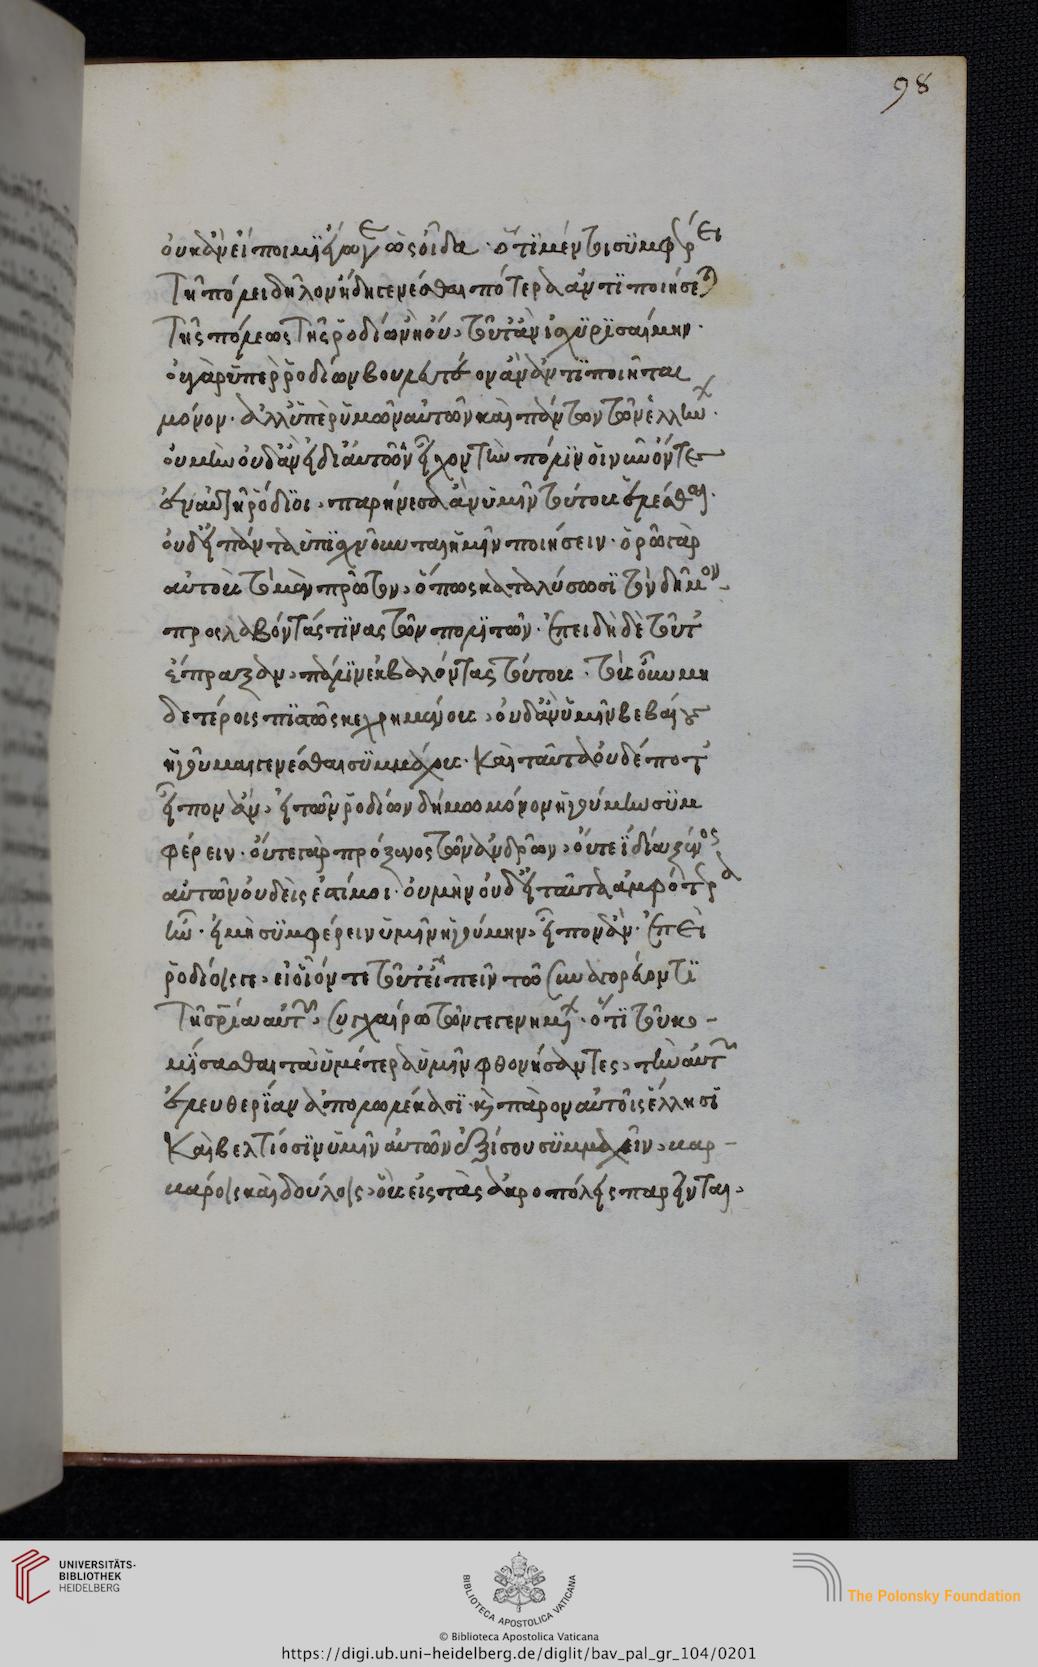 98
οὐκ ἂν εἴποιμι ἔγωγε ὡς οἶδα· ὅτι μέν τοι συμφέρει
τῇ πόλει δῆλον ἤδη γενέσθαι πότερα ἀντιποιήσεται
τῆς πόλεως τῆς ῥοδίων ἢ οὔ, τοῦτ' ἂν ἰσχυρισαίμην·
οὐ γὰρ ὑπὲρ ῥοδίων βουλευτέον ἂν ἀντιποιῆται
μόνον· ἀλλ' ὑπὲρ ὑμῶν αὐτῶν καὶ πάντων τῶν ἑλλήνων·
οὐ μὴν οὐδ' ἂν εἰ δι' αὑτῶν εἶχον τὴν πόλιν οἱ νῦν ὄντες
ἐν αὐτῇ ῥόδιοι, παρήνεσα ἂν ὑμῖν τούτους ἑλέσθαι·
οὐδ' εἰ πάντα ὑπισχνοῦνται ἡμῖν ποιήσειν· ὁρῶ γὰρ
αὐτοὺς τὸ μὲν πρῶτον, ὅπως καταλύσωσι τὸν δῆμον
προσλαβόντάς τινας τῶν πολιτῶν· ἐπειδὴ δὲ τοῦτ'
ἔπραξαν, πάλιν ἐκβαλόντας τούτους· τοὺς οὖν μη
δετέροις πιστῶς κεχρημένους, οὐδ' ἂν ὑμῖν βεβαίους
ἡγοῦμαι γενέσθαι συμμάχους· καὶ ταῦτα οὐδέποτ'
εἶπον ἂν, εἰ τῶν ῥοδίων δήμω μόνον ἡγούμην συμ
φέρειν· οὔτε γὰρ πρόξενος τῶν ἀνδρῶν, οὔτε ἰδία ξένος
αὐτῶν οὐδείς ἐστί μοι· οὐ μὴν οὐδ' εἰ ταῦτα ἀμφότερα
ἦν· εἰ μὴ συμφέρειν ὑμῖν ἡγούμην, εἶπον ἂν· ἐπεὶ
ῥοδίοις γε, εἰ οἷόν τε τοῦτ' εἰπεῖν τῶ συναγορεύοντι
τῇ σωτηρίᾳ αὐτῶν, συγχαίρω τῶν γεγενημένων· ὅτι τοῦ κο-
μίσασθαι τὰ ὑμέτερα ὑμῖν φθονήσαντες, τὴν αὐτῶν
ἐλευθερίαν ἀπολωλέκασι· καὶ παρὸν αὐτοῖς ἕλλησι
καὶ βελτίοσιν ὑμῖν αὐτῶν ἐξίσου συμμαχεῖν, βαρ-
βάροις καὶ δούλοις, οὓς εἰς τὰς ἀκροπόλεις παρεῖνται,
UNIVERSITÄTS-
BIBLIOTHEK
HEIDELBERG
BIBLIOTECA APOSTOLICA VATICANA
The Polonsky Foundation
© Biblioteca Apostolica Vaticana
https://digi.ub.uni-heidelberg.de/diglit/bav_pal_gr_104/0201